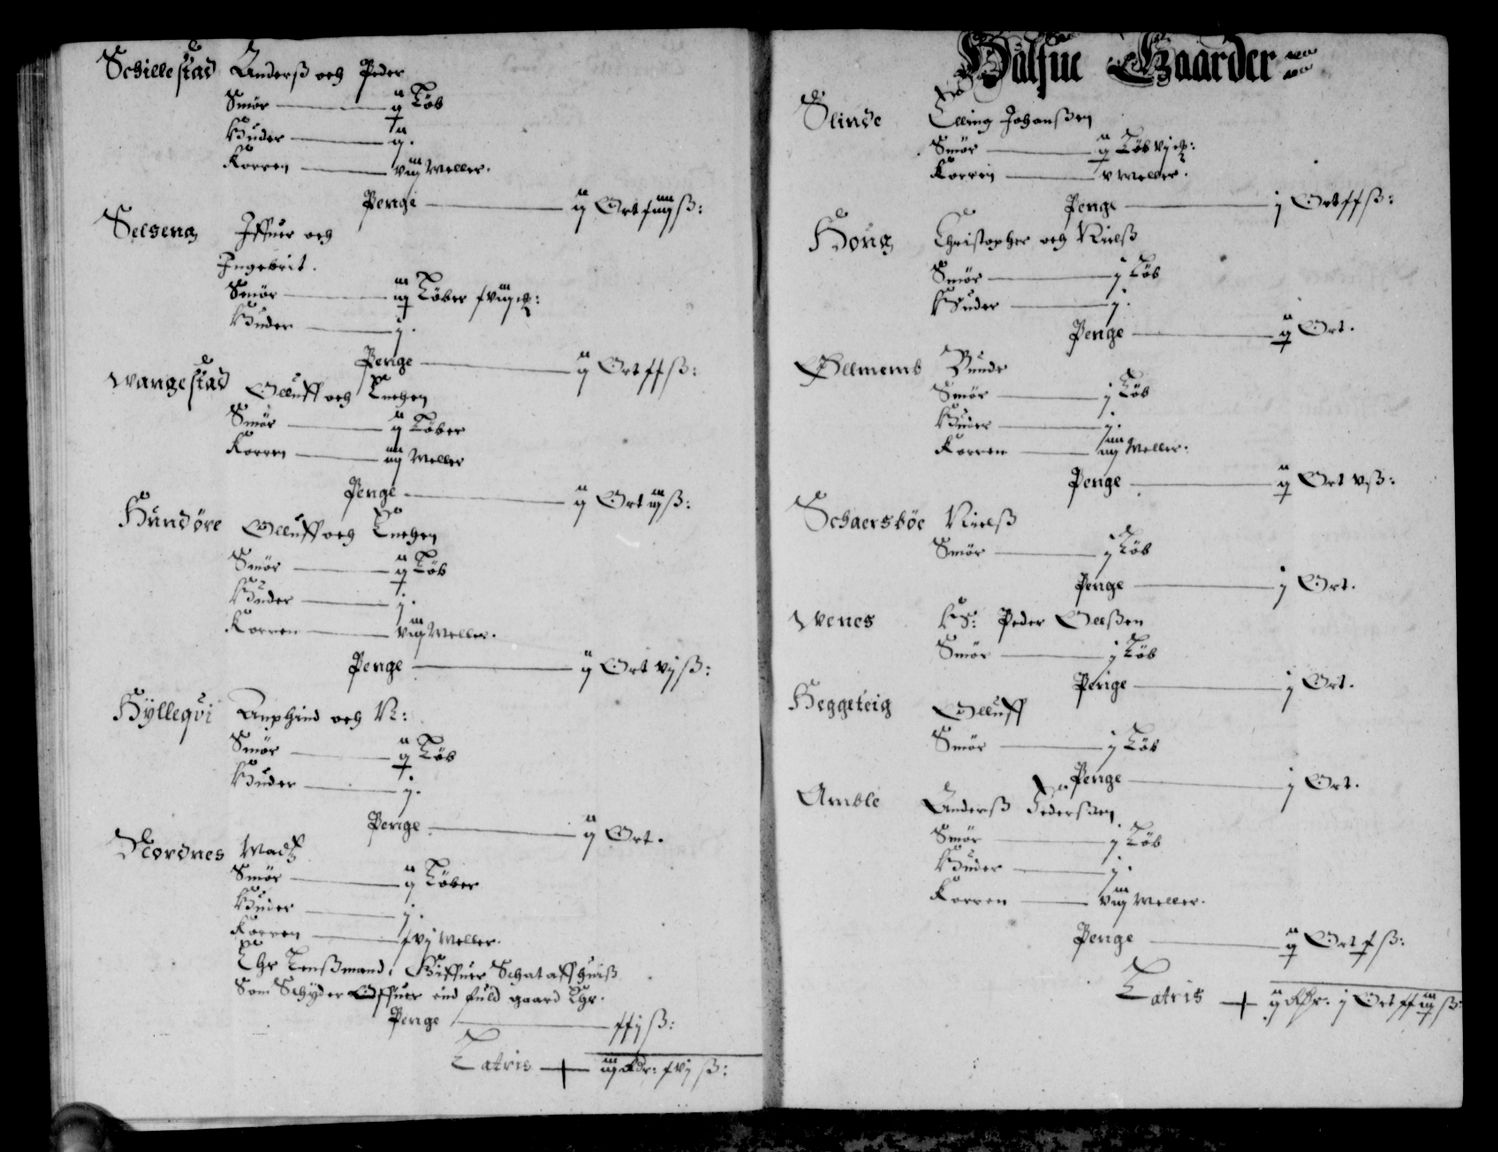 Schillestad Anderß och Peder
Smør — ij Løb
Huder — ij.
Korren — viij Meller.
Penge — ij Ort xiiij ß:
Selseng Iffuer och
Ingebrit.
Smør — iij Løber xviij
Huder — j.
Penge — ij Ort xx ß:
Wangestad Olluff och Enchen
Smør — ij Løber
Korren — iiij Meller
Penge — ij Ort iiij ß:
Hundøre Olluff och Enchen
Smør — ij Løb
Huder — j.
Korren — viij Meller.
Penge — ij Ort vj ß:
Hÿlleqvi Anphind och N:
Smør — ij Løb
Huder — j.
Penge — ij Ort.
Nordnes Madz
Smør — ij Løber
Huder — j.
Korren — xvj Meller.
Er Lenßmand, Giffuer Schat aff huiß
Som Schÿder Offuer end fuld gaard Er.
Penge — xxj ß:
Latris — iij dr: xvj ß:
Halfue Gaarder
Slinde Elling Johanßen
Smør — ij Løb vj
Korren — v Meller.
Penge — j Ort xx ß:
Houg Christopher och Nielß
Smør — j Løb
Huder — j.
Penge — ij Ort.
Ollmemb Bunde
Smør — j Løb
Huder — j.
Korren — iiij Meller.
Penge — ij Ort v ß:
Schaersbøe Nielß
Smør — j Løb
Penge — j Ort.
Wenes Hr: Peder Olßen
Smør — j Løb
Penge — j Ort.
Heggeteig Olluff
Smør — j Løb
Penge — j Ort.
Amble Anderß Pederßen
Smør — j Løb
Huder — j.
Korren — viij Meller.
Penge — ij Ort x ß:
Latris — ij dr: j Ort xxiij ß: